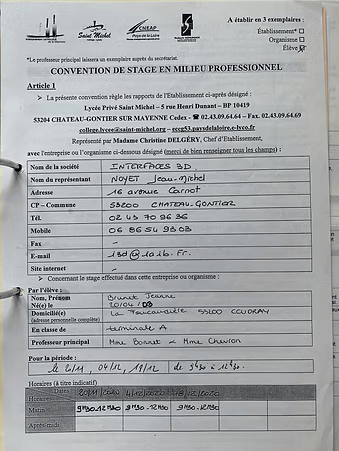 Saint Michel
CNEAP
Pays de la Loire
A établir en 3 exemplaires :
Etablissement*
Organisme
Élève
*Le professeur principal laissera un exemplaire auprès du secrétariat.
CONVENTION DE STAGE EN MILIEU PROFESSIONNEL
Article 1
La présente convention règle les rapports de l'Etablissement ci-après désigné :
Lycée Privé Saint Michel – 5 rue Henri Dunant – BP 10419
53204 CHATEAU-GONTIER SUR MAYENNE Cedex - ☎ 02.43.09.64.64 – Fax. 02.43.09.64.69
college.lycee@saint-michel.org – eccg53.paysdelaloire.e-lyco.fr
Représenté par Madame Christine DELGÉRY, Chef d'Etablissement,
avec l'entreprise ou l'organisme ci-dessous désigné (merci de bien renseigner tous les champs) :
Nom de la société INTERFACES 3D
Nom du représentant NOYET Jean-Michel
Adresse 16 avenue Carnot
CP – Commune 53200 CHATEAU-GONTIER
Tél. 02 43 70 96 36
Mobile 06 86 54 93 03
Fax -
E-mail
Site internet -
Concernant le stage effectué dans cette entreprise ou organisme :
Par l'élève :
Nom, Prénom Brunet Jeanne
Né(e) le 20/04/03
Domicilié(e) La 53200 COUDRAY
(adresse personnelle complète)
En classe de terminale A
Professeur principal Mme Bonnet & Mme Chevron
Pour la période :
le 20/11, 04/12, 18/12 de 9h30 à 12h30.
Horaires (à titre indicatif)
Dates 20/11/2020 4/12/2020 18/12/2020
Horaires
Matin 9H30-12H30 9H30-12H30 9H30-12H30
Après-midi